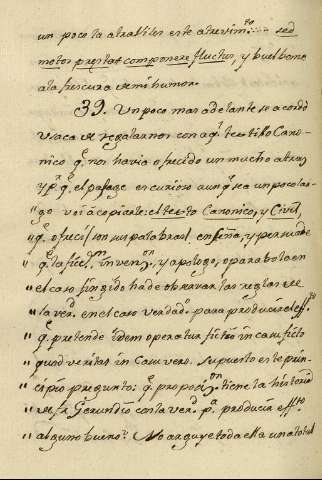 un poco la atrabilis este atrevim.to ... sed
motos præstat componere fluctus, y buelbome
a la frescura de mi humor.
39. Un poco mas adelante se acordó
Usaca de regalarnos con aq.l testo Cano-
nico q.e nos havia ofrecido un mucho atras
y p.r q.e el pasage es curioso aunq.e sea un poco lar-
" go voi à copiarle: el testo Canonico, y Civil,
" q.e ofrecí son sus palabras enseña, y persuade
" q.e la ficc.on inven.on, y apologo, o parabola en
" el caso fingido ha de observar las reglas de
" la verd. en el caso verdad.o para producir el eff.to
" q.e pretende idem operatur fictio in casu ficto
" quod veritas in casu vero. Supuesto este prin-
" cipio pregunto: q.e proporc.on tiene la historia
" de fr. Gerundio con la verd. p.a producir eff.to
" alguno bueno? No arguye toda ella un total